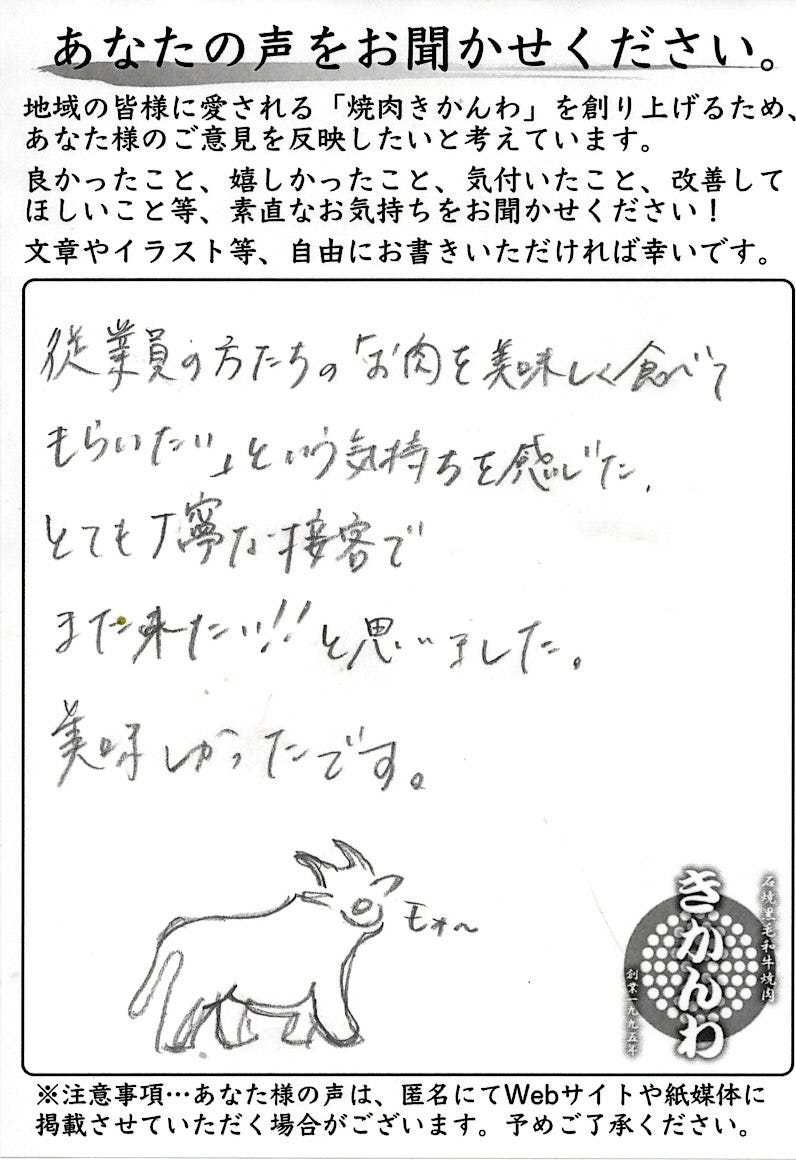 あなたの声をお聞かせください。
地域の皆様に愛される「焼肉きかんわ」を創り上げるため、
あなた様のご意見を反映したいと考えています。
良かったこと、嬉しかったこと、気付いたこと、改善して
ほしいこと等、素直なお気持ちをお聞かせください！
文章やイラスト等、自由にお書きいただければ幸いです。
従業員の方たちの「お肉を美味しく食べて
もらいたい」という気持ちを感じた。
とても丁寧な接客で
また来たい!!と思いました。
美味しかったです。
モォ〜
石焼黒毛和牛焼肉
きかんわ
創業一九九五年
※注意事項…あなた様の声は、匿名にてWebサイトや紙媒体に
掲載させていただく場合がございます。予めご了承ください。